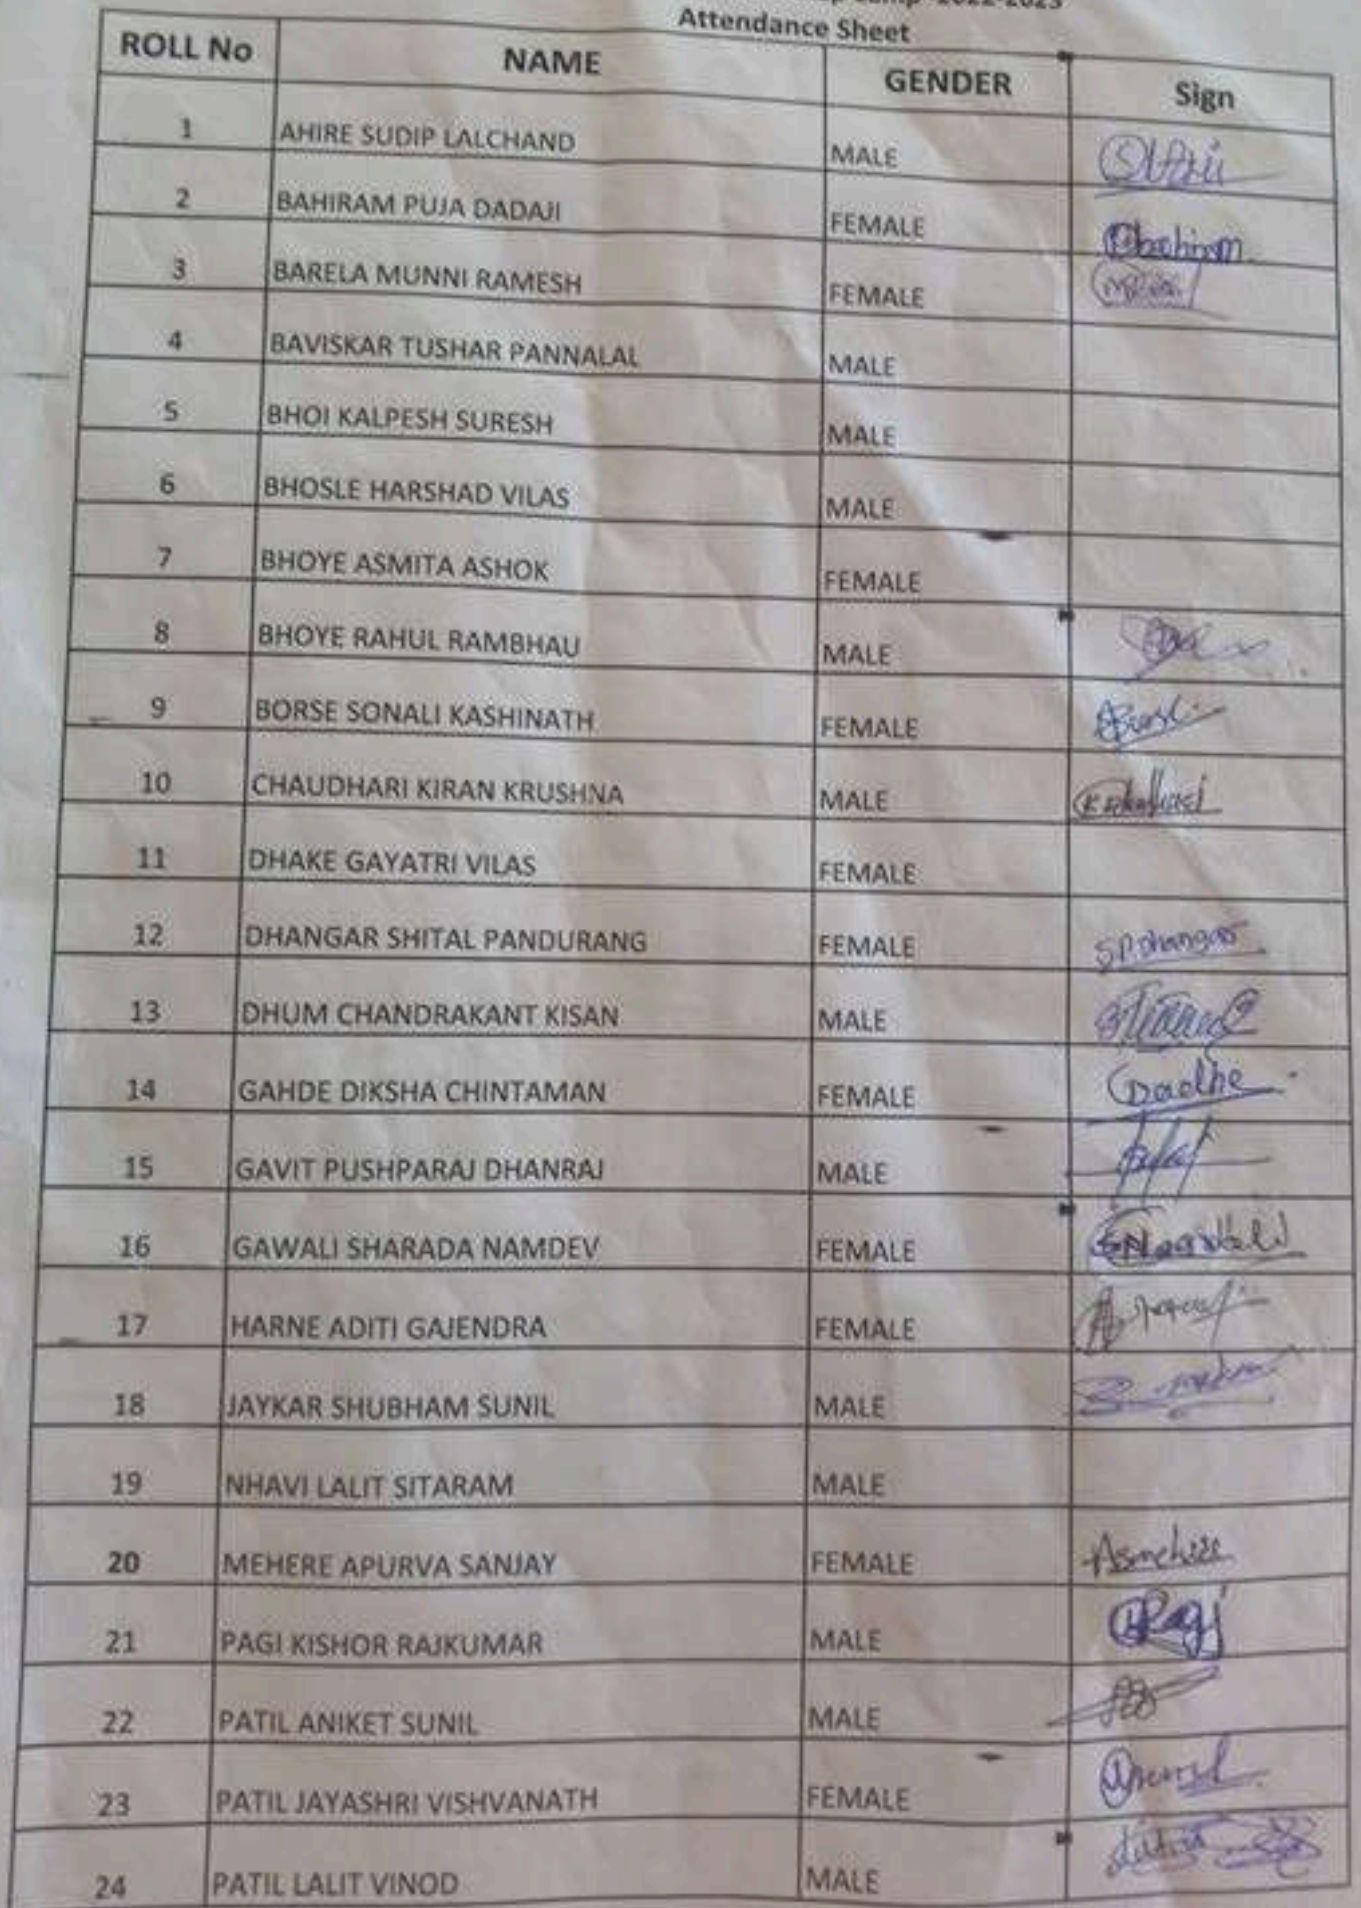 Camp -2022-2023
Attendance Sheet
ROLL No NAME GENDER Sign
1 AHIRE SUDIP LALCHAND MALE
2 BAHIRAM PUJA DADAJI FEMALE Pbahiram
3 BARELA MUNNI RAMESH FEMALE
4 BAVISKAR TUSHAR PANNALAL MALE
5 BHOI KALPESH SURESH MALE
6 BHOSLE HARSHAD VILAS MALE
7 BHOYE ASMITA ASHOK FEMALE
8 BHOYE RAHUL RAMBHAU MALE
9 BORSE SONALI KASHINATH FEMALE
10 CHAUDHARI KIRAN KRUSHNA MALE
11 DHAKE GAYATRI VILAS FEMALE
12 DHANGAR SHITAL PANDURANG FEMALE S.P.Dhangar
13 DHUM CHANDRAKANT KISAN MALE
14 GAHDE DIKSHA CHINTAMAN FEMALE
15 GAVIT PUSHPARAJ DHANRAJ MALE
16 GAWALI SHARADA NAMDEV FEMALE
17 HARNE ADITI GAJENDRA FEMALE
18 JAYKAR SHUBHAM SUNIL MALE
19 NHAVI LALIT SITARAM MALE
20 MEHERE APURVA SANJAY FEMALE
21 PAGI KISHOR RAJKUMAR MALE
22 PATIL ANIKET SUNIL MALE
23 PATIL JAYASHRI VISHVANATH FEMALE
24 PATIL LALIT VINOD MALE